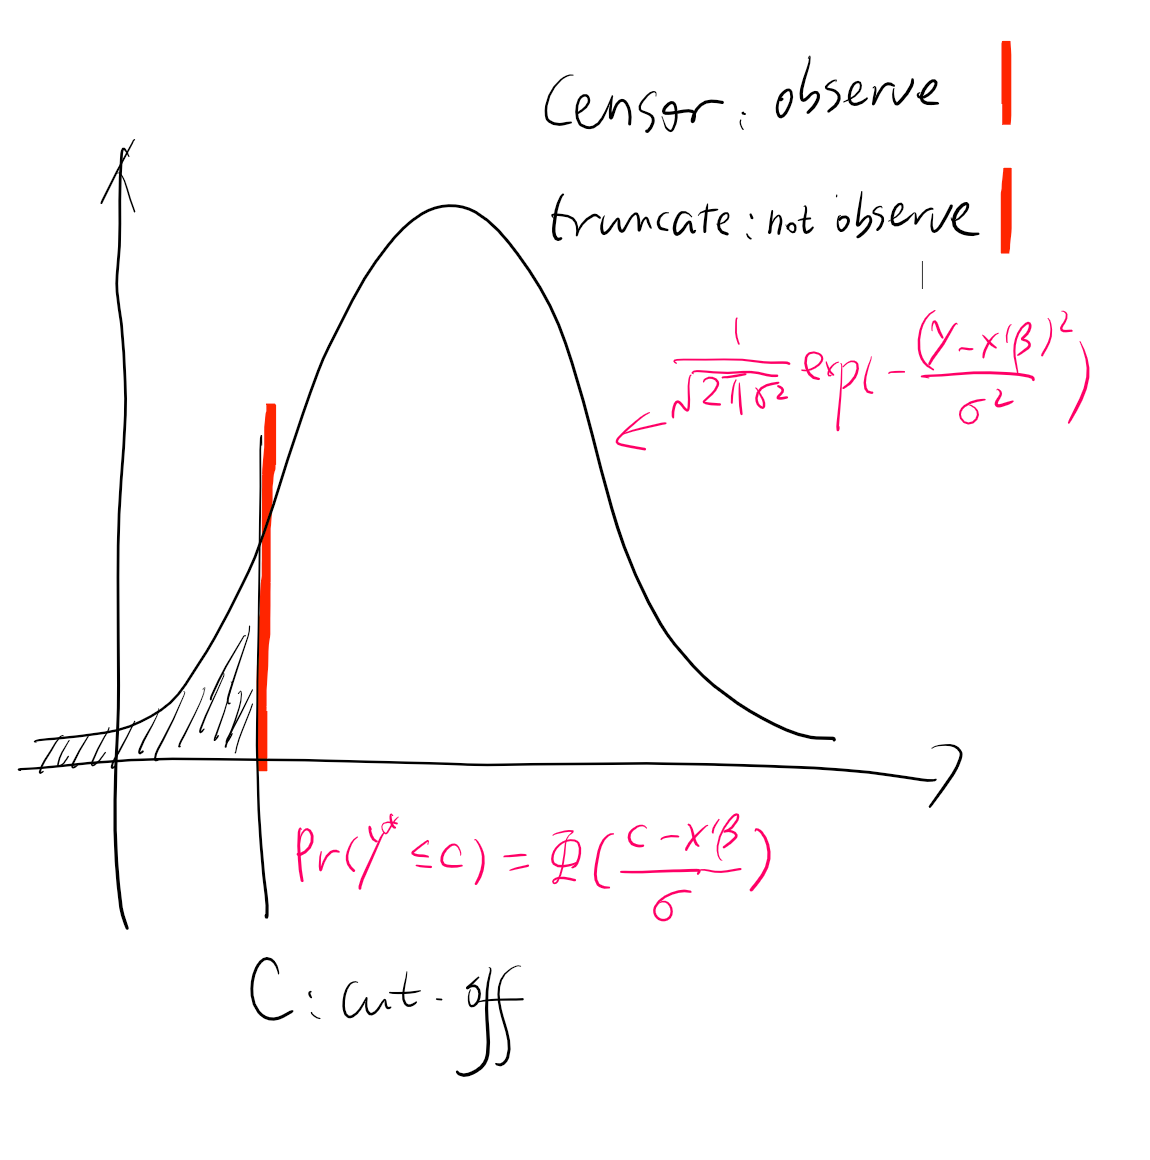 Censor: observe
truncate: not observe
1/√2πσ² exp(-(y-x'β)²/σ²)
Pr(y* ≤ c) = Φ(c-x'β/σ)
C: cut-off